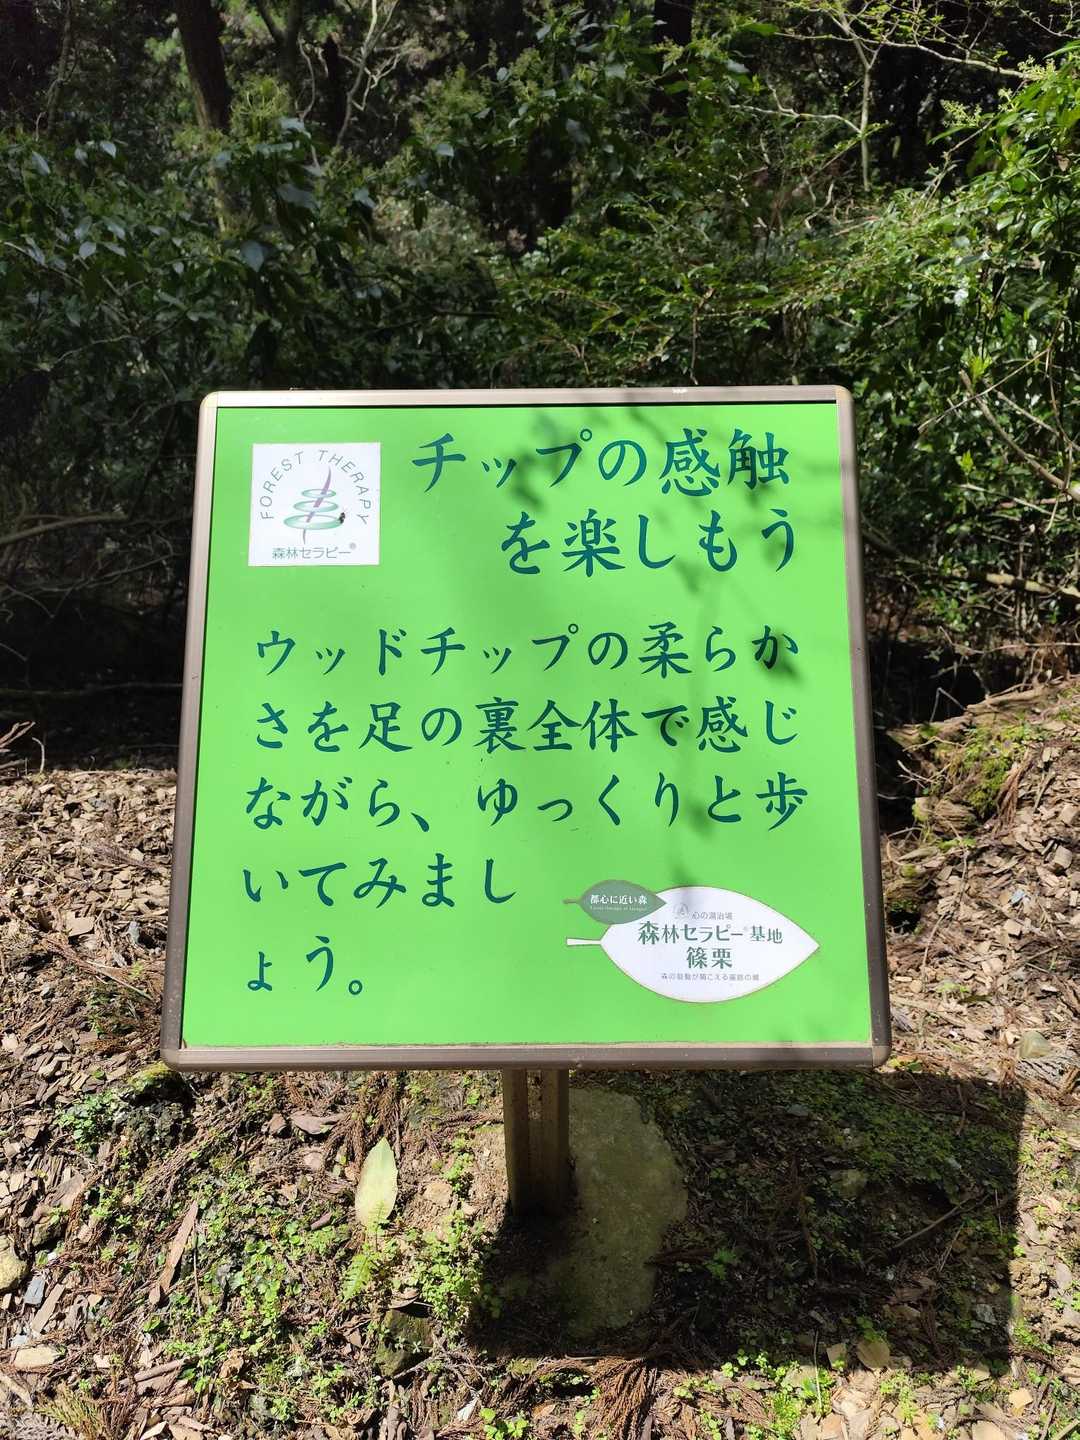 FOREST THERAPY
森林セラピー®
チップの感触
を楽しもう
ウッドチップの柔らか
さを足の裏全体で感じ
ながら、ゆっくりと歩
いてみまし
ょう。
都心に近い森
心の湯治場
森林セラピー®基地
篠栗